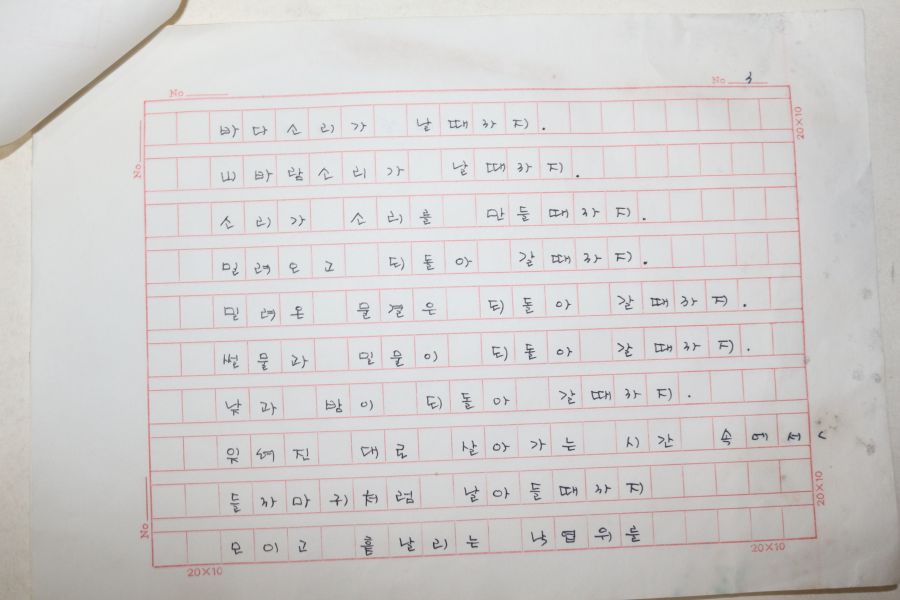 No 3
No
바다소리가 날때까지.
비바람소리가 날때까지.
소리가 소리를 만들때까지.
밀려오고 되돌아 갈때까지.
밀려온 물결은 되돌아 갈때까지.
썰물과 밀물이 되돌아 갈때까지.
낮과 밤이 되돌아 갈때까지.
잊혀진 대로 살아가는 시간 속에서
들까마귀처럼 날아들때까지
모이고 흩날리는 낙엽위를
No
No
20×10
20×10
20×10
20×10